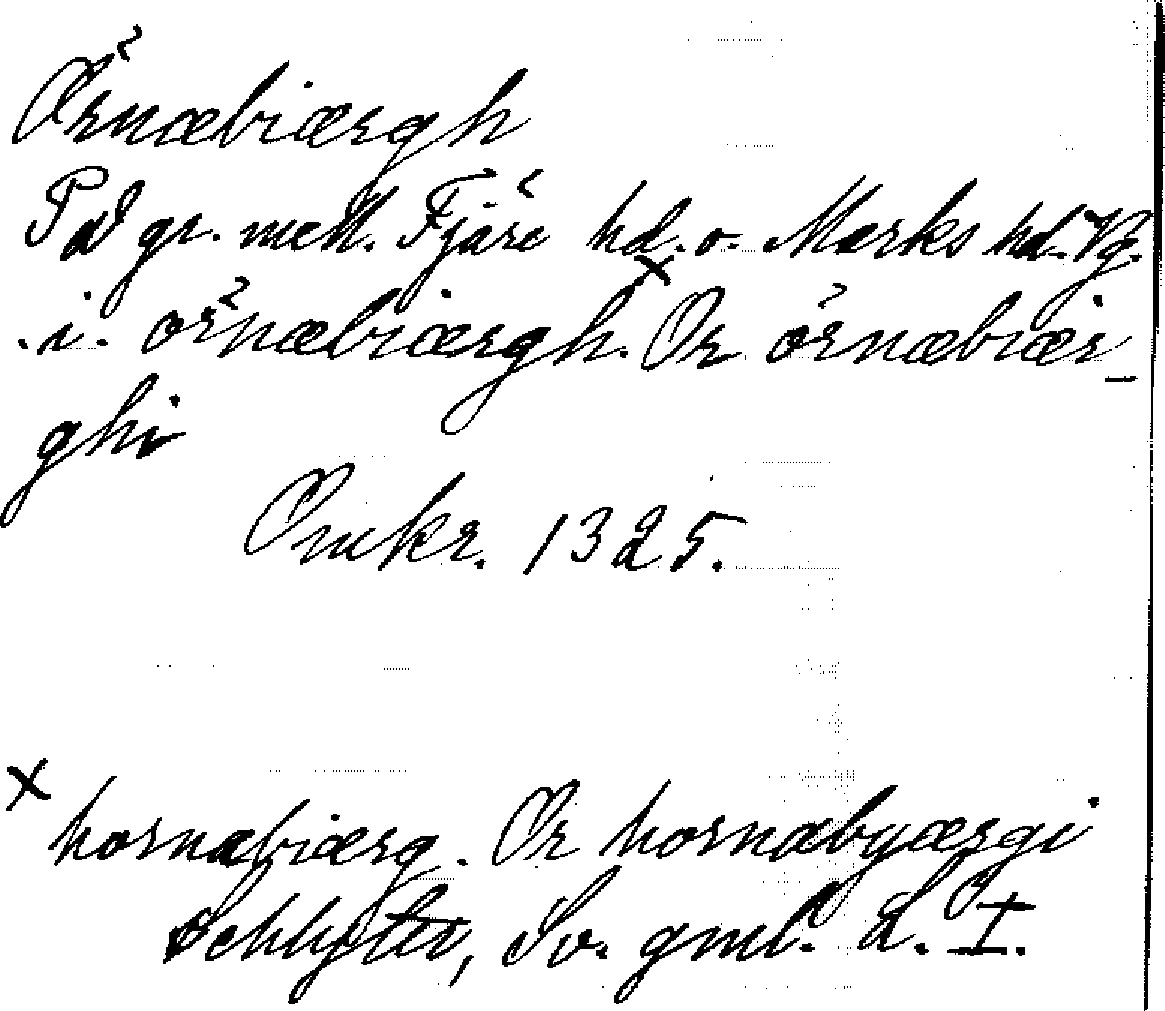 Ørnæbiærgh
På gr. mell. Fjäre hd. o. Marks hd. Vg.
.i. ørnæbiærgh.× Or ørnæbiær_
ghi
Omkr. 1325.
× hornabiærg. Or hornabyærgi
Schlyter, Sv. gml. L. I.